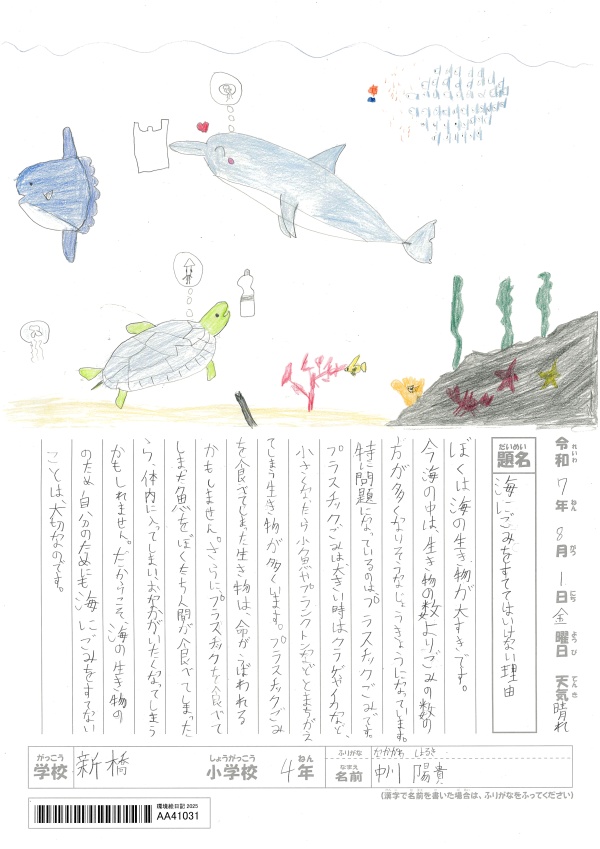 令和 7年 8月 1日 金曜日 天気 晴れ
れいわ ねん がつ にち ようび てんき
だいめい
題名
海にごみをすててはいけない理由
ぼくは海の生き物が大すきです。
今海の中は、生き物の数よりごみの数の
方が多くなりそうなじょうきょうになっています。
特に問題になっているのはプラスチックごみです。
プラスチックごみは大きい時はクラゲやイカなど、
小さくなったら小魚やプランクトンなどとまちがえ
てしまう生き物が多くいます。プラスチックごみ
を食べてしまった生き物は、命がうばわれる
かもしません。さらにプラスチックを食べて
しまた魚を。ぼくたち人間が食べてしまった
ら、体内に入ってしまい、おなかがいたくなってしまう
かもしれません。だからこそ、海の生き物の
ため自分のためにも海にごみをすてない
ことは、大切なのです。
がっこう
学校
新橋
しょうがっこう
小学校
4年
ねん
ふりがな
なまえ
名前
中川 陽貴
(漢字で名前を書いた場合は、ふりがなをふってください)
環境絵日記 2025
AA41031